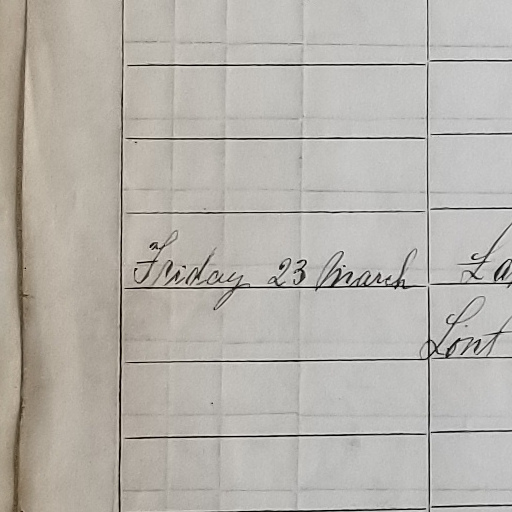 Friday 23 March La
Lint